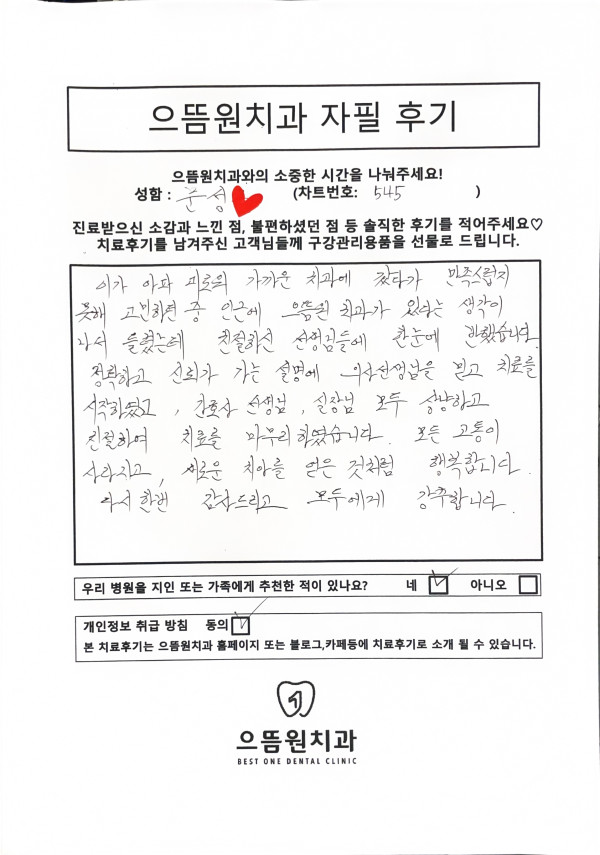 으뜸원치과 자필 후기
으뜸원치과와의 소중한 시간을 나눠주세요!
성함 : 준성 (차트번호: 545 )
진료받으신 소감과 느낀 점, 불편하셨던 점 등 솔직한 후기를 적어주세요♡
치료후기를 남겨주신 고객님들께 구강관리용품을 선물로 드립니다.
이가 아파 가까운 치과에 갔다가 만족스럽지
못해 고민하던 중 인근에 으뜸원 치과가 있다는 생각이
나서 들렸는데 친절하신 선생님들에 한눈에 반했습니다.
정확하고 신뢰가 가는 설명에 의사선생님을 믿고 치료를
시작하였고, 간호사 선생님, 실장님 모두 상냥하고
친절하여 치료를 마무리하였습니다. 모든 고통이
사라지고, 새로운 치아를 얻은 것처럼 행복합니다.
다시한번 감사드리고 모두에게 강추합니다.
우리 병원을 지인 또는 가족에게 추천한 적이 있나요? 네 아니오
개인정보 취급 방침 동의
본 치료후기는 으뜸원치과 홈페이지 또는 블로그,카페등에 치료후기로 소개 될 수 있습니다.
으뜸원치과
BEST ONE DENTAL CLINIC